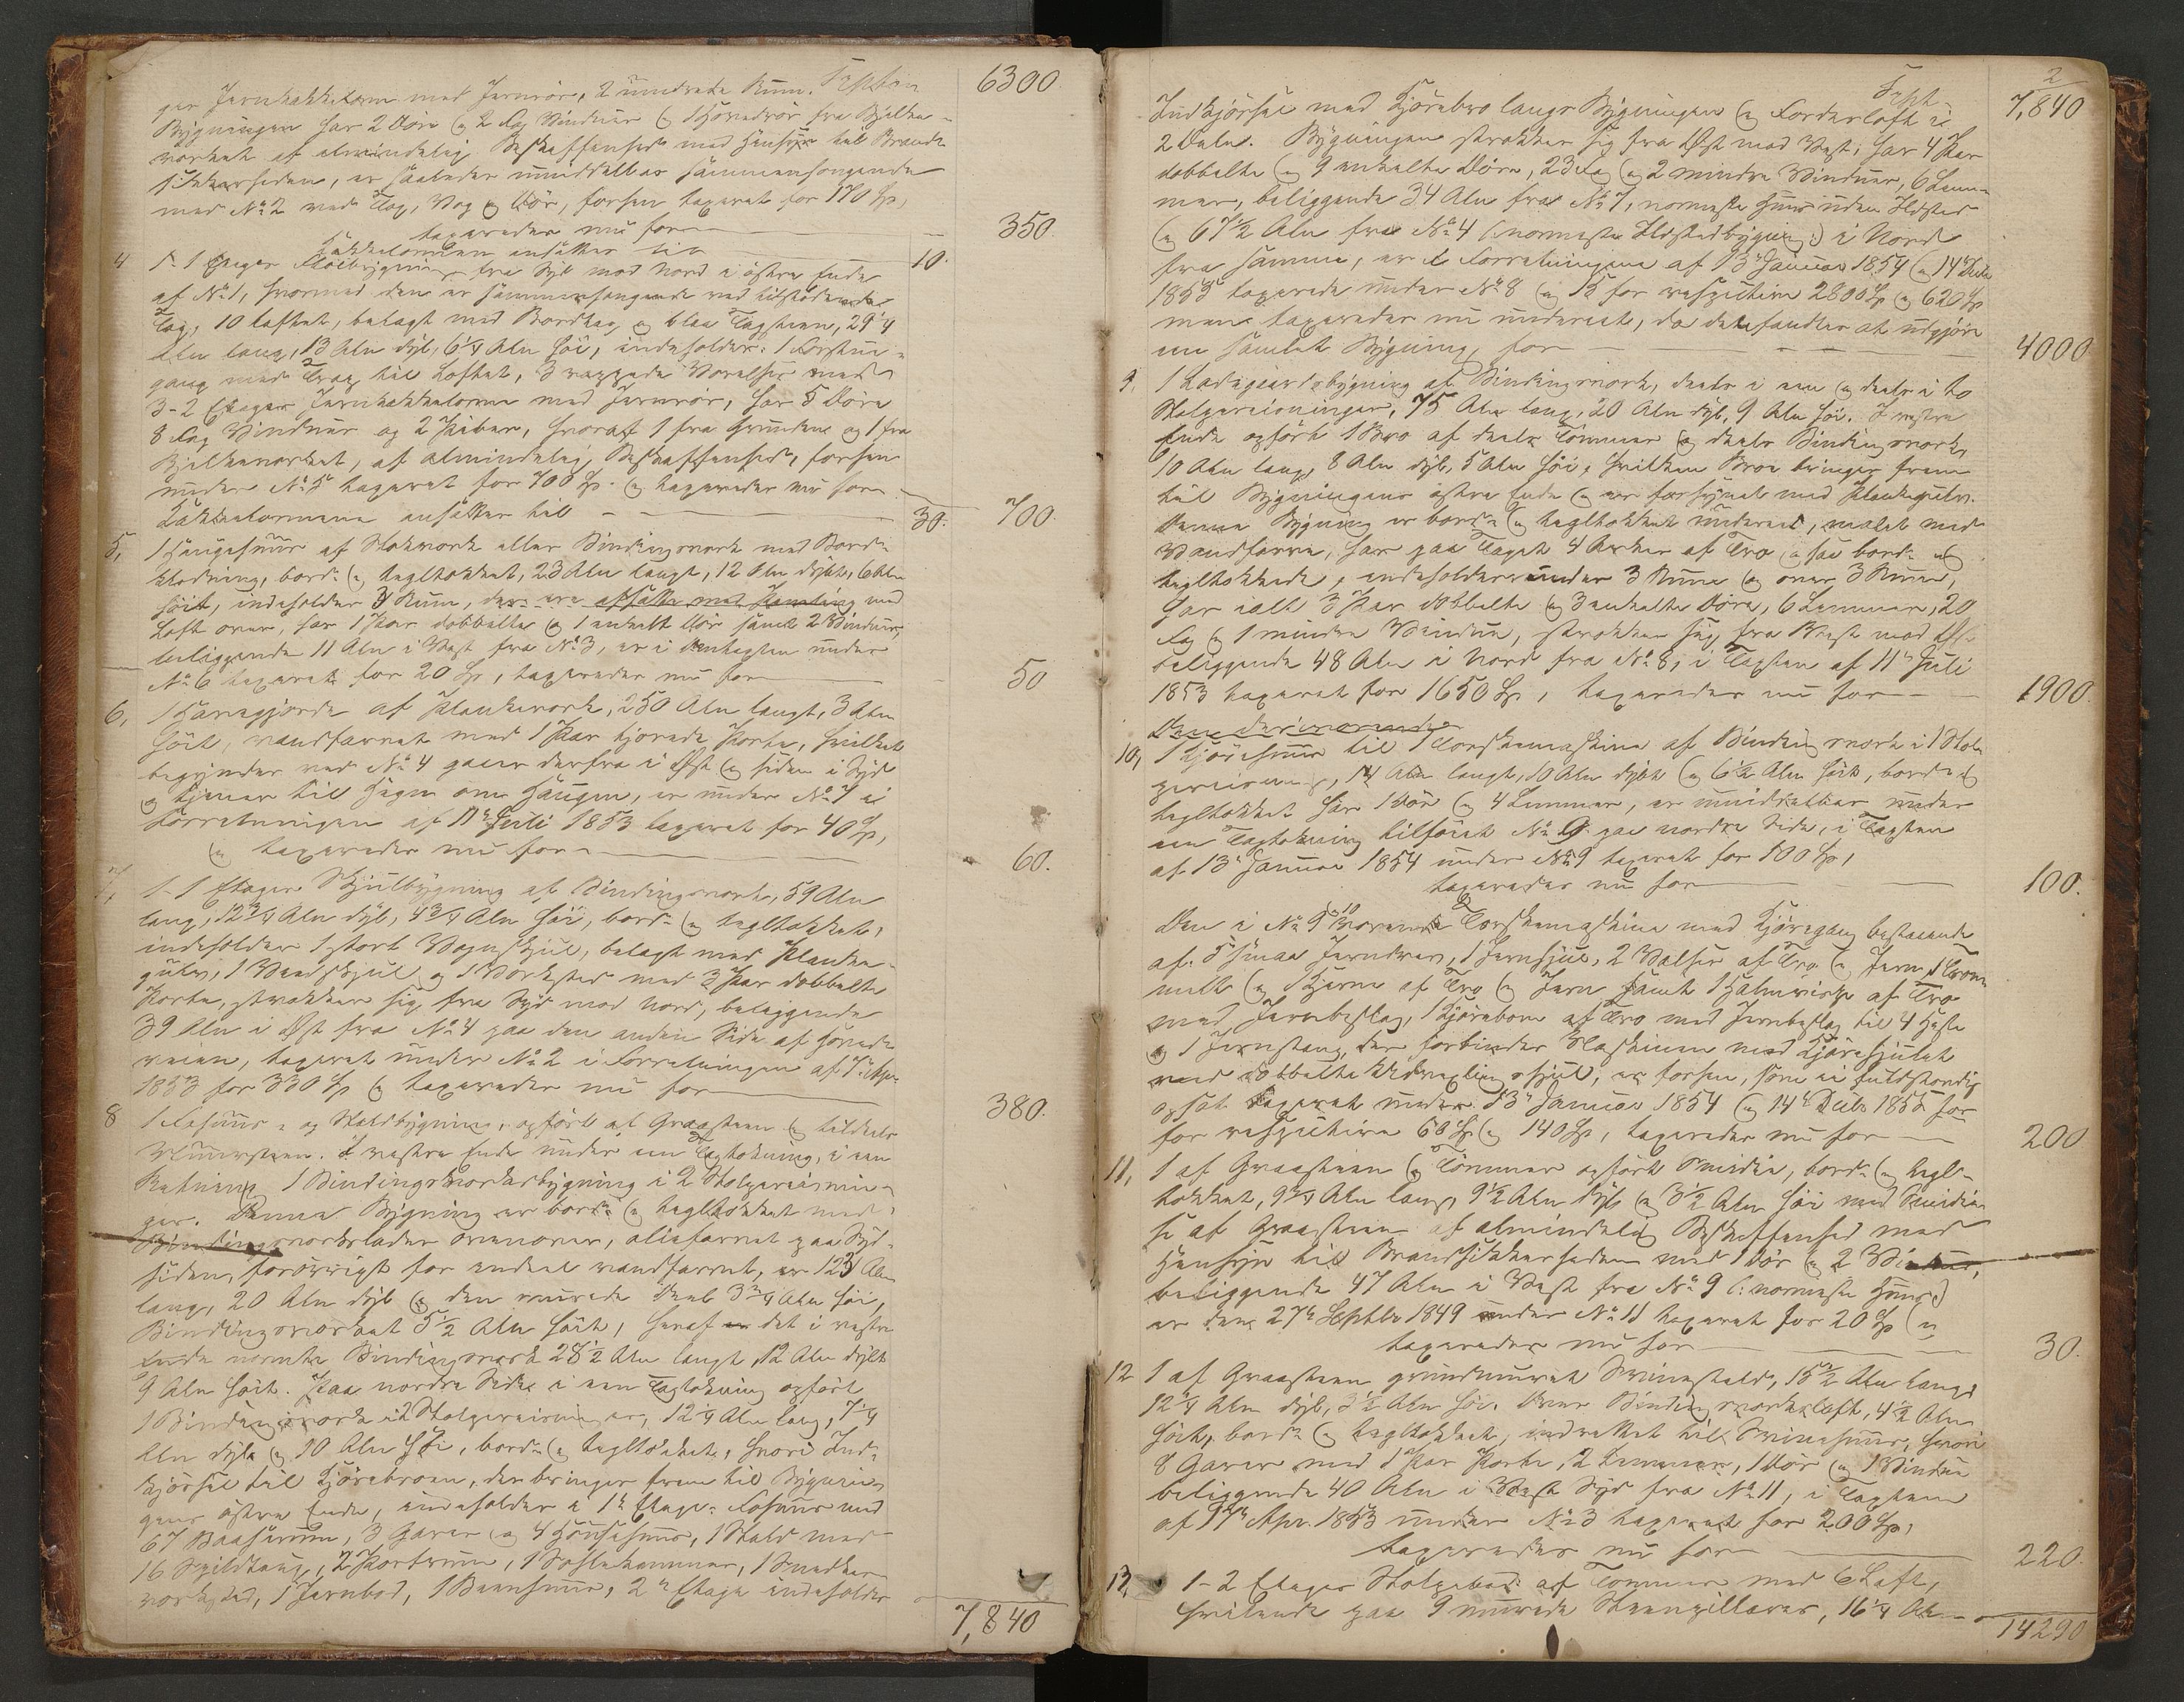 Transport 6300
ger Jernkakkelovn med Jernrör, 2 Rum.
Bygningen har 2 Döre og 2 Fag Vinduer og fra Bjelke-
værket af almindelig Beskaffenhed med Hensyn til Brand-
sikkerheden, er saaledes umiddelbar sammenhængende
med No 2 ved Tag, Væg og Dör, forhen taxeret for 170 Sp,
taxeredes nu for 350.
Kakkelovnen ansættes til 10.
4 1- 1 Etages Flöibygning fra Syd mod Nord i östre Ende
af No 1, hvormed den er sammenhængende ved tilstödende
Tag, 10 loftet, belagt med Bordtag og blaa Tagsteen, 29 1/4
Alen lang, 13 Alen dyb, 6 1/4 Alen höi, indeholder: 1 Forstue-
gang med Trap til Loftet, 3 Værelser med
3-2 Etages Jernkakkelovne med Jernrör, har 5 Döre
8 Fag Vinduer og 2 Piber, hvoraf 1 fra Grunden og 1 fra
Bjelkeværket, af almindelig Beskaffenhed, forhen
under No 5 taxeret for 700 Sp. og taxeredes nu for 700.
Kakkelovnene ansættes til 30.
5, 1 Haugehuus af Stokværk eller Bindingsværk med Bord-
klædning, bord- og tegltækket, 23 Alen langt, 12 Alen dybt, 6 Alen
höit, indeholder 4 Rum, med
Loft over, har 1 Par dobbelte og 1 enkelt Dör samt 2 Vinduer,
beliggende 11 Alen i Vest fra No 3, er i under
No 6 taxeret for 20 Sp, taxeredes nu for 50
6, 1 Havegjerde af Plankeværk, 250 Alen langt, 3 Alen
höit, vandfarvet med 1 Par Porte, hvilket
begynder ved No 4 gaaer derfra i Öst og siden i Syd
og tjener til Hegn om Haugen, er under No 7 i
Forretningen af 11te Juli 1853 taxeret for 40 Sp,
og taxeredes nu for 60.
7, 1- 1 Etages Skjulbygning af Bindingsværk, 59 Alen
lang, 12 3/4 Alen dyb, 4 3/4 Alen höi, bord- og tegltækket,
indeholder 1 stort Vognskjul, belagt med Planke-
gulv, 1 Vedskjul og 1 Værksted med 3 Par dobbelte
Porte, strækker sig fra Syd mod Nord, beliggende
39 Alen i Öst fra No 4 paa den anden Side af Hoved-
veien, taxeret under No 2 i Forretningen af
1853 for 330 Sp og taxeredes nu for 380.
8 1 Fæhuus- og Staldbygning, opfört af Graasteen og tildeels
Muursteen. I vestre Ende under een Tagtækning, i een
Retning 1 Bindingsværksbygning i 2 Stolpereisnin-
ger. Denne Bygning er bord- og tegltækket med
Bindingsværkslader ovenover, oliefarvet paa Syd-
siden, forövrigt for endeel vandfarvet, er 123 Alen
lang, 20 Alen dyb og den murede Deel 3 3/4 Alen höi,
Bindingsværket 5 1/2 Alen höit, heraf er det i vestre
Ende nævnte Bindingsværk 28 1/2 Alen langt, 12 Alen dybt
9 Alen höit. Paa nordre Side i een Tagtækning opfört
1 Bindingsværk i 2 Stolpereisninger, 12 1/4 Alen lang, 7 1/4
Alen dyb og 10 Alen höi, bord- og tegltækket, hvori Ind-
kjörsel til Kjörebroen, der bringer frem til Bygnin-
gens östre Ende, indeholder i 1te Etage: Fæhuus med
67 Baaserum, 3 Garer og 4 Hönsehuus, 1 Stald med
16 Spiltaug, 2 Portrum, 1 Selekammer, 1 Snedker-
værksted, 1 Jernbod, 1 2den Etage indeholder
7,840
2
Transpt. 7,840
Indkjörsel med Kjörebro langs Bygningen og Foderloft i
2 Dele. Bygningen strækker sig fra Öst mod Vest, har 4 Par
dobbelte og 9 enkelte Döre, 23 Fag og 2 mindre Vinduer, 6 Lem-
mer, beliggende 34 Alen fra No 7, nærmeste Huus uden Ildsted
og 67 1/2 Alen fra No 4 (nærmeste Ildstedbygning) i Nord
fra samme, er i Forretningene af 13de Januar 1854 og 14de
1855 taxerede under No 8 og 15 for respective 2800 Sp og 620 Sp
men taxeredes nu undereet, da de befandtes at udgjöre
een samlet Bygning, for 4000
9. 1 Ladegaardsbygning af Bindingsværk, deels i een og deels i to
Stolpereisninger, 75 Alen lang, 20 Alen dyb, 9 Alen höi. I vestre
Ende opfört 1 Bro af deels Tömmer og deels Bindingsværk,
10 Alen lang, 8 Alen dyb, 5 Alen höi, hvilken Broe bringer frem
til Bygningens östre Ende og er forsynet med Plankegulv.
Denne Bygning er bord- og tegltækket undereet, malet med
Vandfarve, har paa Taget 4 Arker af Træ ogsaa bord- og
tegltækkede, indeholder under 3 Rum og over 3 Rum,
har ialt 3 Par dobbelte og 3 enkelte Döre, 6 Lemmer, 20
Fag og 1 mindre Vindue, strækker sig fra Vest mod Öst
beliggende 48 Alen i Nord fra No 8, i Taxten af 11te Juli
1853 taxeret for 1650 Sp, taxeredes nu for 1900.
Den deriværende
10, 1 Kjörehuus til 1 Torskemaskine af Bindingsværk i 1 Stol-
pereisning, 14 Alen langt, 10 Alen dybt og 6 1/2 Alen höit, bord- og
tegltækket har 1 Dör og 4 Lemmer, er umiddelbar under
een Tagtækning tilföiet No 9 paa nordre Side, i Taxten
af 13de Januar 1854 under No 9 taxeret for 100 Sp,
taxeredes nu for 100.
Den i No 9 & 10 værende Torskemaskine med Kjöregang bestaaende
af 5 smaa Jerndrev, 1 Jernhjul, 2 Valser af Træ og Jern, 1 Trom-
melle og 1 Harve af Træ og Jern samt 1 Halmrist af Træ
med Jernbeslag, 1 Kjörebom af Træ med Jernbeslag til 4 Heste
og 1 Jernstang, der forbinder Maskinen med Kjörehjulet
med dobbelte Udvexlingshjul, er forhen, som ei fuldstændig
opsat taxeret under 13de Januar 1854 og 14de 1855 for
for respective 60 Sp og 140 Sp, taxeredes nu for 200
11, 1 af Graasteen og Tömmer opfört Smidie, bord- og tegl-
tækket, 9 3/4 Alen lang, 9 1/2 Alen dyb og 3 1/2 Alen höi med Smidie-
se af Graasteen af almindelig Beskaffenhed med
Hensyn til Brandsikkerheden med 1 Dör og 2 Vinduer,
beliggende 47 Alen i Vest fra No 9 (: nærmeste Huus)
er den 27de Septbr 1849 under No 11 taxeret for 20 Sp og
taxeredes nu for 30.
12 1 af Graasteen grundmuret Svinestald, 15 1/2 Alen lang
12 1/4 Alen dyb, 3 1/2 Alen höi. Over Bindingsværksloft, 4 1/2 Alen
höit, bord- og tegltækket, indrettet til Svinehuus, hvori
8 Garer med 1 Par Porte, 2 Lemmer, 1 Dör og 1 Vindue
beliggende 40 Alen i Vest Syd fra No 11, i Taxten
af 11te Apr. 1853 under No 3 taxeret for 200 Sp,
taxeredes nu for 220.
13, 1- 2 Etages Stolpebod af Tömmer med Loft,
hvilende paa 9 murede Steenpillarer, 16 1/4 Alen
14290